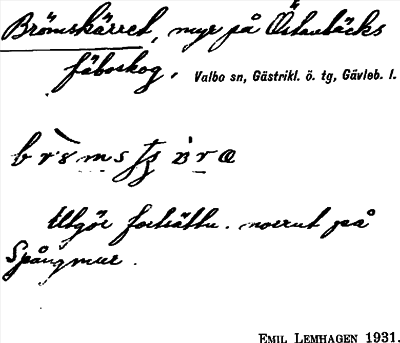 Brömskärret, myr på Östanbäcks
fäboskog, Valbo sn, Gästrikl. ö. tg, Gävleb. l.
Utgör fortsättn. norrut på
Spångmur.
EMIL LEMHAGEN 1931.